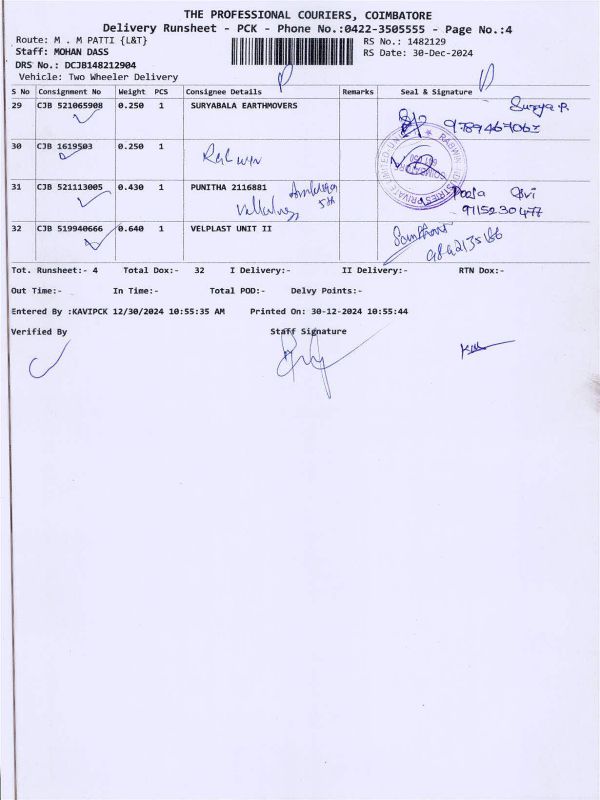 THE PROFESSIONAL COURIERS, COIMBATORE
Delivery Runsheet - PCK - Phone No.:0422-3505555 - Page No.:4
Route: M . M PATTI {L&T}
RS No.: 1482129
Staff: MOHAN DASS
RS Date: 30-Dec-2024
DRS No.: DCJB148212904
Vehicle: Two Wheeler Delivery
S No Consignment No Weight PCS Consignee Details Remarks Seal & Signature
29 CJB 521065908 0.250 1 SURYABALA EARTHMOVERS
Surya P.
30 CJB 1619503 0.250 1
31 CJB 521113005 0.430 1 PUNITHA 2116881
32 CJB 519940666 0.640 1 VELPLAST UNIT II
Tot. Runsheet:- 4 Total Dox:- 32 I Delivery:- II Delivery:- RTN Dox:-
Out Time:- In Time:- Total POD:- Delvy Points:-
Entered By :KAVIPCK 12/30/2024 10:55:35 AM Printed On: 30-12-2024 10:55:44
Verified By Staff Signature